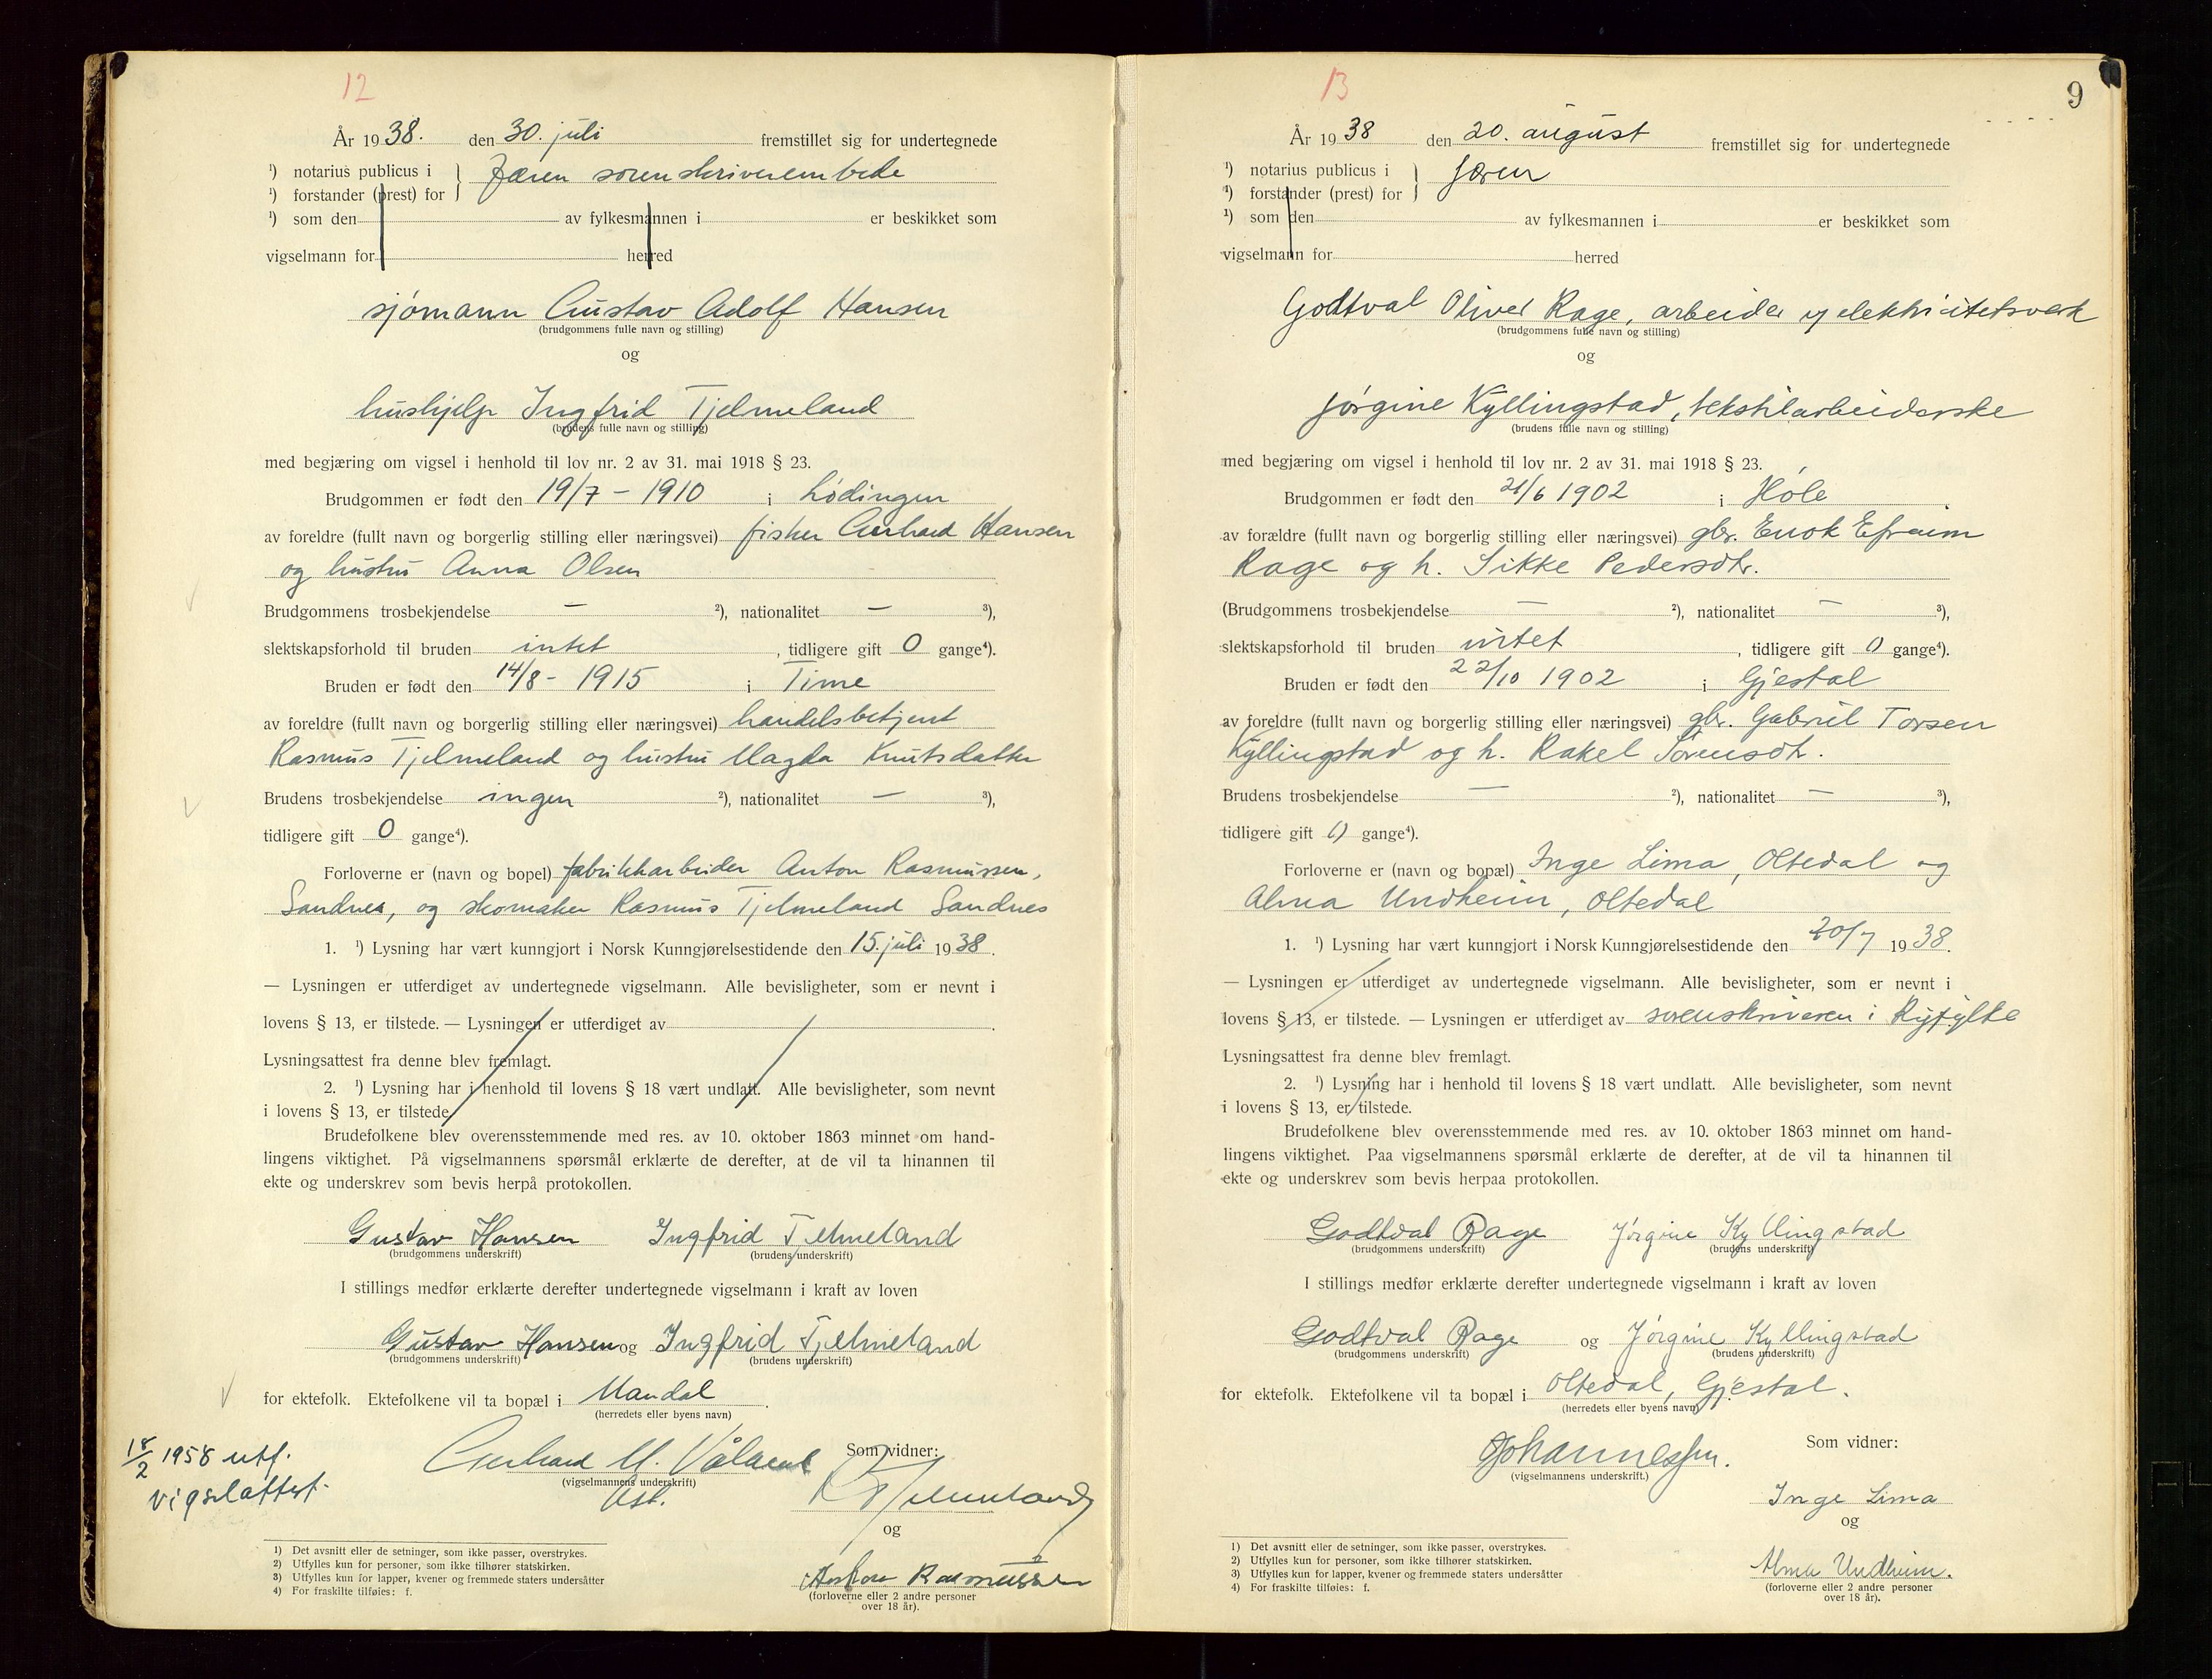 12
År 1938. den 30. juli fremstillet sig for undertegnede
¹) notarius publicus i } Jæren sorenskriverembede
¹) forstander (prest) for
¹) som den av fylkesmannen i er beskikket som
vigselmann for herred
sjømann Gustav Adolf Hansen
(brudgommens fulle navn og stilling)
og
hushjelp Ingfrid Tjelmeland
(brudens fulle navn og stilling)
med begjæring om vigsel i henhold til lov nr. 2 av 31. mai 1918 § 23.
Brudgommen er født den 19/7 - 1910 i Lødingen
av foreldre (fullt navn og borgerlig stilling eller næringsvei) fisker Gerhard Hansen
og hustru Anna Olsen
Brudgommens trosbekjendelse — ²), nationalitet — ³),
slektskapsforhold til bruden intet, tidligere gift 0 gange⁴).
Bruden er født den 14/8 - 1915 i Time
av foreldre (fullt navn og borgerlig stilling eller næringsvei) handelsbetjent
Rasmus Tjelmeland og hustru Magda Knutsdatter
Brudens trosbekjendelse ingen ²), nationalitet — ³),
tidligere gift 0 gange⁴).
Forloverne er (navn og bopel) fabrikkarbeider Anton Rasmussen,
Sandnes, og skomaker Rasmus Tjelmeland Sandnes
1. ¹) Lysning har vært kunngjort i Norsk Kunngjørelsestidende den 15. juli 1938.
— Lysningen er utferdiget av undertegnede vigselmann. Alle bevisligheter, som er nevnt i
lovens § 13, er tilstede. — Lysningen er utferdiget av .
Lysningsattest fra denne blev fremlagt.
2. ¹) Lysning har i henhold til lovens § 18 vært undlatt. Alle bevisligheter, som nevnt
i lovens § 13, er tilstede
Brudefolkene blev overensstemmende med res. av 10. oktober 1863 minnet om hand-
lingens viktighet. På vigselmannens spørsmål erklærte de derefter, at de vil ta hinannen til
ekte og underskrev som bevis herpå protokollen.
Gustav Hansen Ingfrid Tjelmeland
(brudgommens underskrift) (brudens underskrift)
I stillings medfør erklærte derefter undertegnede vigselmann i kraft av loven
Gustav Hansen og Ingfrid Tjelmeland
(brudgommens underskrift) (brudens underskrift)
for ektefolk. Ektefolkene vil ta bopæl i Mandal.
(herredets eller byens navn)
18/2 1958 utf.
vigselattest.
Gerhard M. Våland
(vigselmannens underskrift)
Ast.
Som vidner:
R Tjelmeland
og
Anton Rasmussen
(forloverne eller 2 andre personer
over 18 år).
1) Det avsnitt eller de setninger, som ikke passer, overstrykes.
2) Utfylles kun for personer, som ikke tilhører statskirken.
3) Utfylles kun for lapper, kvener og fremmede staters undersåtter
4) For fraskilte tilføies: f.
13
9
År 1938 den 20. august fremstillet sig for undertegnede
¹) notarius publicus i } Jæren
¹) forstander (prest) for
¹) som den av fylkesmannen i er beskikket som
vigselmann for herred
Godtval Oliver Rage, arbeider v/ elektricitetsverk
(brudgommens fulle navn og stilling)
og
Jørgine Kyllingstad, tekstilarbeiderske
(brudens fulle navn og stilling)
med begjæring om vigsel i henhold til lov nr. 2 av 31. mai 1918 § 23.
Brudgommen er født den 21/6 1902 i Høle
av forældre (fullt navn og borgerlig stilling eller næringsvei) gbr. Enok Efraim
Rage og h. Sikke Pedersdtr.
(Brudgommens trosbekjendelse — ²), nationalitet — ³),
slektskapsforhold til bruden intet, tidligere gift 0 gange⁴).
Bruden er født den 22/10 1902 i Gjestal
av foreldre (fullt navn og borgerlig stilling eller næringsvei) gbr. Gabriel Torsen
Kyllingstad og h. Rakel Sørensdtr.
Brudens trosbekjendelse — ²), nationalitet — ³),
tidligere gift 0 gange⁴).
Forloverne er (navn og bopæl) Inge Lima, Oltedal og
Alma Undheim, Oltedal
1. ¹) Lysning har vært kunngjort i Norsk Kunngjørelsestidende den 20/7 1938.
— Lysningen er utferdiget av undertegnede vigselmann. Alle bevisligheter, som er nevnt i
lovens § 13, er tilstede. — Lysningen er utferdiget av sorenskriveren i Ryfylke
Lysningsattest fra denne blev fremlagt.
2. ¹) Lysning har i henhold til lovens § 18 vært undlatt. Alle bevisligheter, som nevnt
i lovens § 13, er tilstede.
Brudefolkene blev overensstemmende med res. av 10. oktober 1863 minnet om hand-
lingens viktighet. Paa vigselmannens spørsmål erklærte de derefter, at de vil ta hinannen til
ekte og underskrev som bevis herpaa protokollen.
Godtval Rage Jørgine Kyllingstad
(brudgommens underskrift) (brudens underskrift)
I stillings medfør erklærte derefter undertegnede vigselmann i kraft av loven
Godtval Rage og Jørgine Kyllingstad
(brudgommens underskrift) (brudens underskrift)
for ektefolk. Ektefolkene vil ta bopæl i Oltedal, Gjestal.
(herredets eller byens navn)
Johannessen.
(vigselmannens underskrift.)
Som vidner:
Inge Lima
og
Alma Undheim.
(forloverne eller 2 andre personer
over 18 år).
1) Det avsnitt eller de setninger, som ikke passer, overstrykes.
2) Utfylles kun for personer, som ikke tilhører statskirken.
3) Utfylles kun for lapper, kvener og fremmede staters undersåtter
4) For fraskilte tilføies: f.